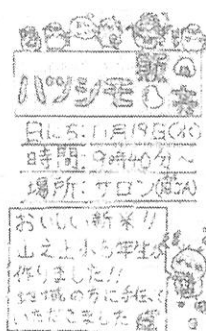 新米
ハツシモ
日にち:11月19日(水)
時間:9時40分~
場所:サロン
おいしい新米!!
山之上小5年生が
作りました!!
地域の方に手伝
いただきました